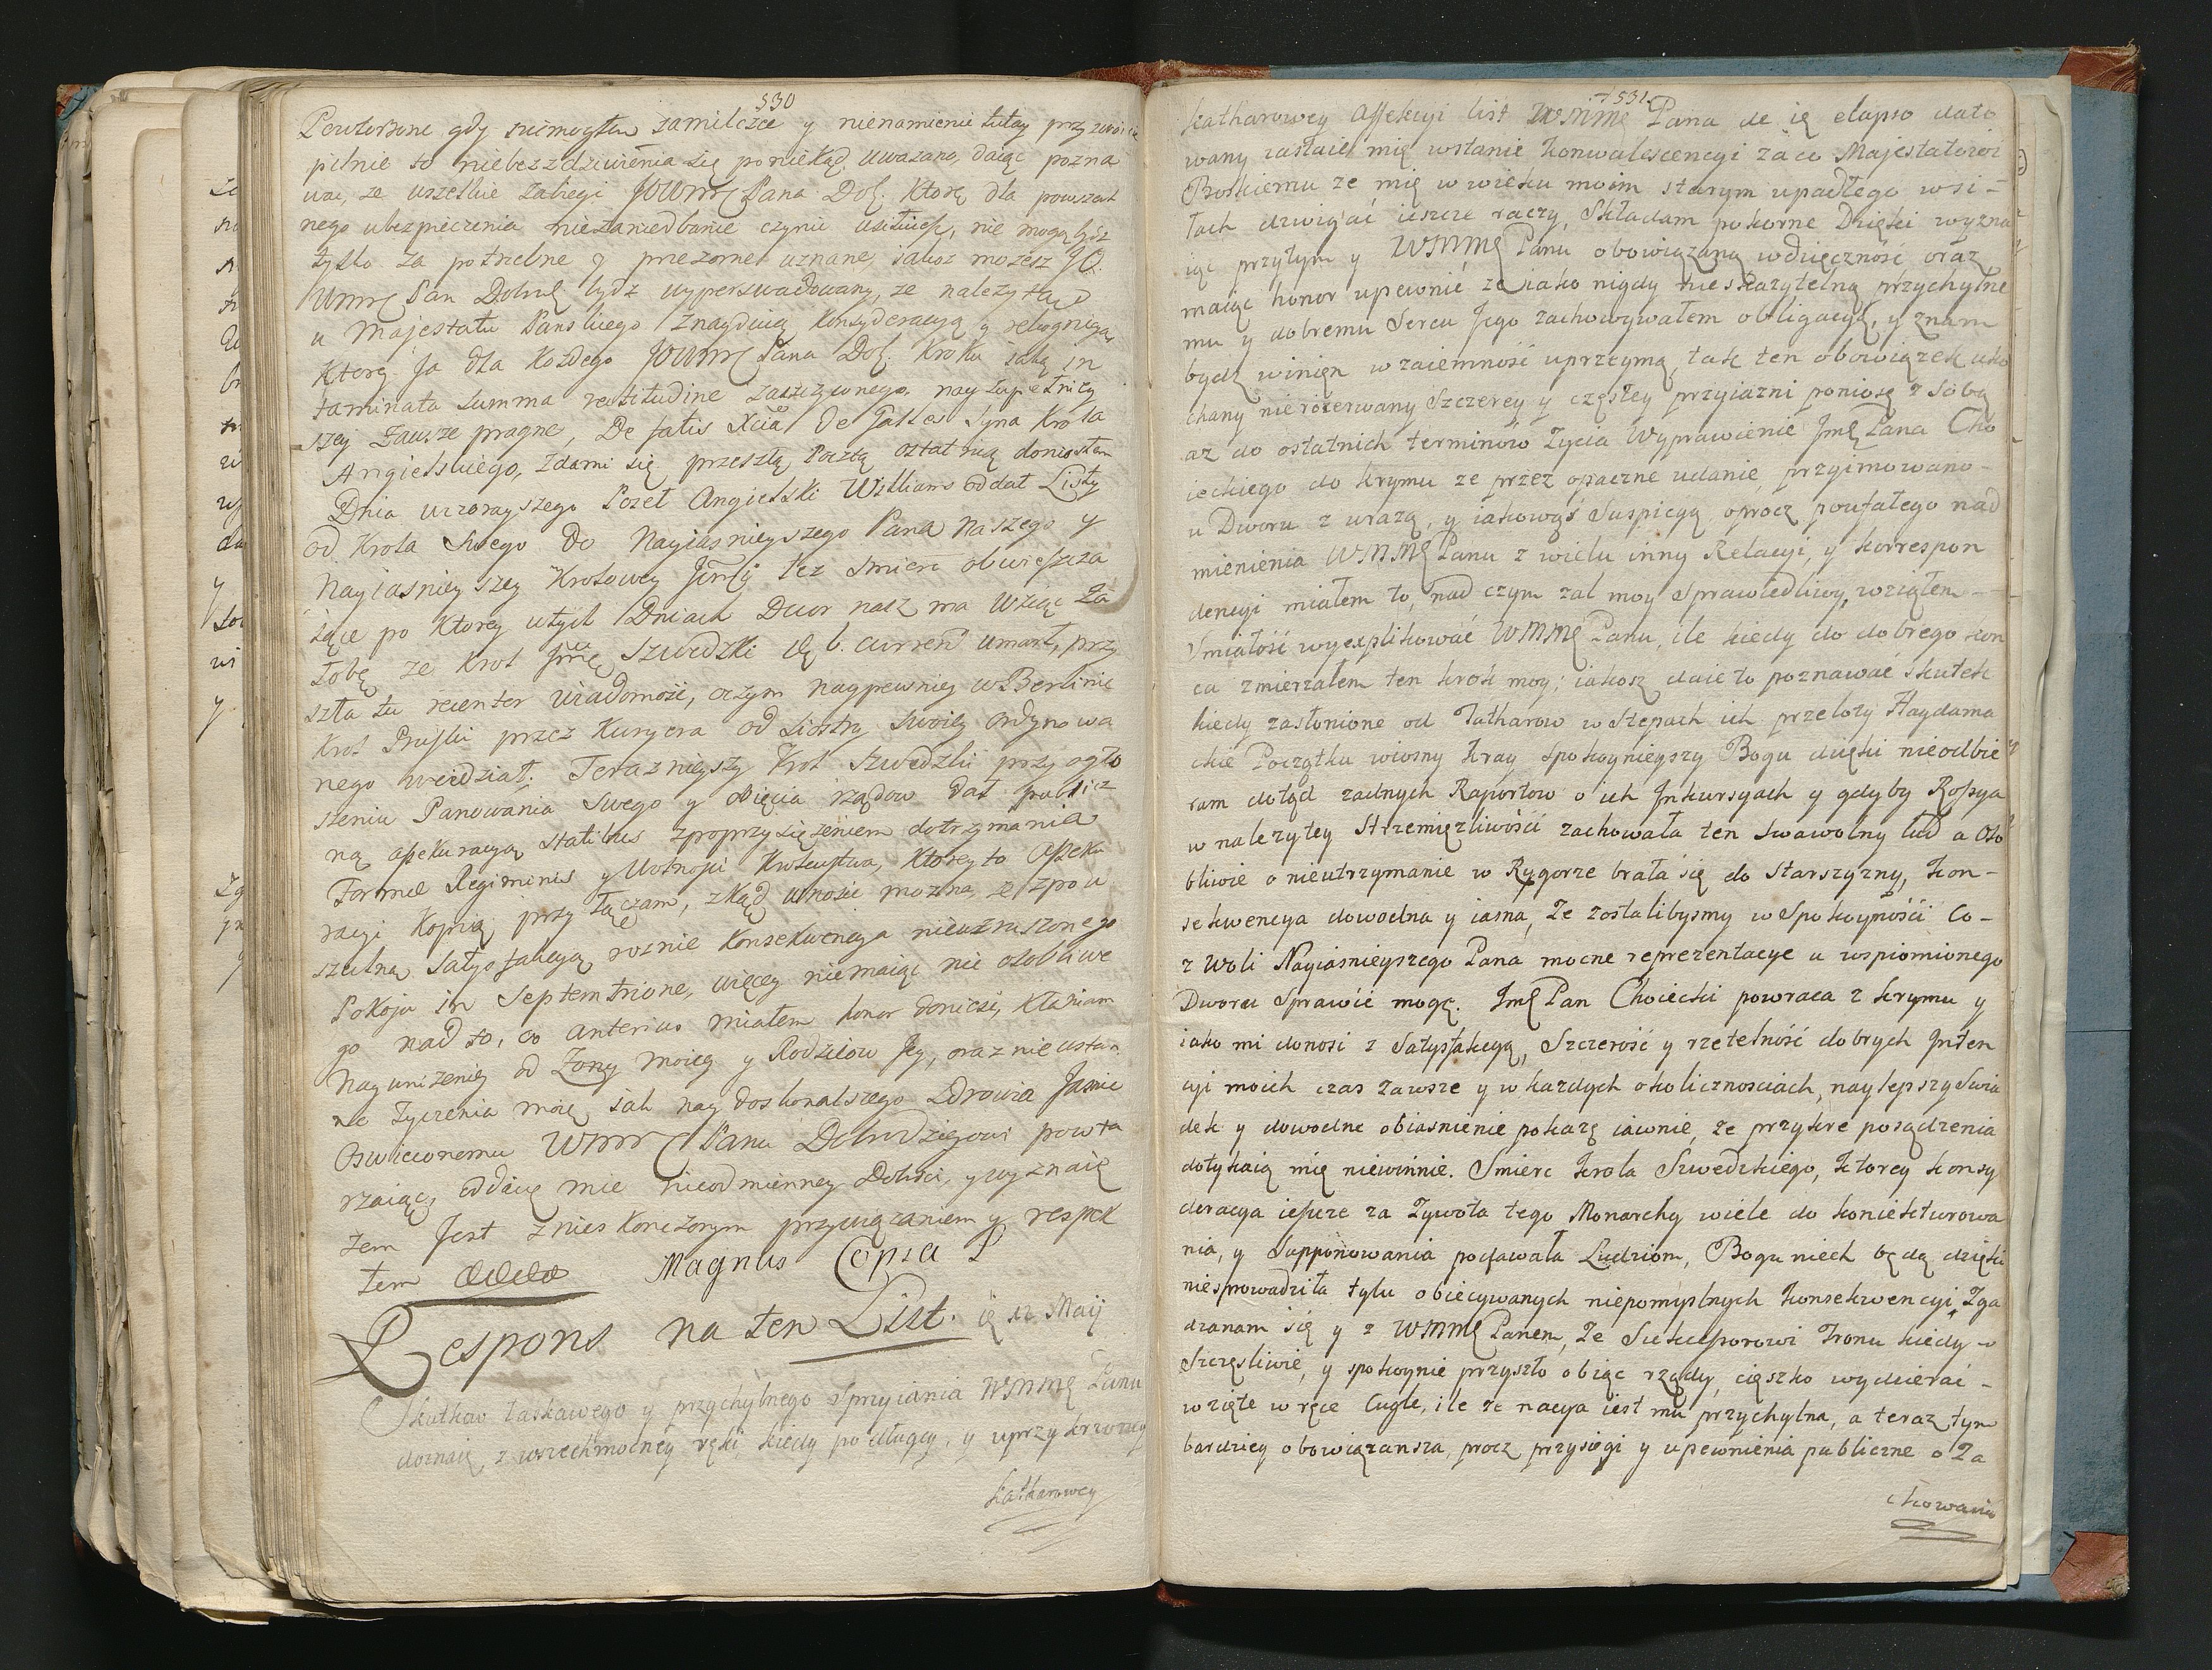 530
Powtorzone gdy niemogłem zamilczeć y nienamienic tutay
pilnie to niebezzdziwienia się poniekąd uwazano, daiąc pozna
wac, ze wszelkie zabiegi JOWmC Pana Dob. Ktorę dla powszech
nego ubezpieczenia niezaniedbanie czynic usiłuiesz, nie mogą bydz
tylko za potrzebne y przezorne uznane, iakoz mozesz JO.
WmC Pan Dobrdz bydz wyperswadowany, ze nalezytą
u Majestatu Panskiego znayduią konsyderacyą y rekognicyą
Ktorę Ja dla Kozdego JOWmC Pana Dob. Kroku iaką in
taminata summa rectitudine zaszczyconego, nayzupełnięy
szey zawsze pragnę, De fatis Xcia De Galles Syna Krola
Angielskiego, zdami się przeszłą Pocztą ostatnią doniosłem
Dnia wczorayszego Poseł Angielski Williams oddał Listy
od Krola Swego do Nayiasnieyszego Pana Naszego y
Nayiasnieyszey Krolowey Jmci tez smierc obwieszcza
iące po Ktorey w tych Dniach Dwor nasz ma wziąc Za
łobę ze Krol Jmć Szwedzki dę 6. curren umarł, przy
szła tu recenter wiadomość, oczym naypewniey w Berlinie
Krol Pruski przez Kuryera od Siostry swoiey ordynowa
nego wiedział. Teraznieyszy Krol Szwedzki przy ogło
szeniu Panowania Swego y obięcia rządow dał publicz
ną assekuracyą Statibus zpoprzysięzeniem dotrzymania
Formæ Regiminis y Wolnosci Krolewstwa, Ktorey to Asseku
racyi Kopią przyłączam, zkąd wnosic mozna, ze zpow
szechną Satysfakcyą rosnie Konsekwencya niewzruszonego
Pokoju in Septemtrione, więcey niemaiąc nic osobliwe
go nad to, co anterius miałem honor doniesc, kłaniam
nayunizeniey od Zony moiey y Rodzicow Jey, oraz nieustan
ne zyczenia moię iak naydoskonalszego zdrowia Jasnie
Oswieconemu WmC Panu Dobrodzieiowi powta
rzaiąc, oddaię mie nieodmienney Dobroci, y wyznaię
zem Jest znieskonczonym przywiązaniem y respek
tem
Magnus Copia
Respons na ten List. dę 12 Maij
Skutkow łaskawego y przychylnego sprzyiania WMMę Panu
doznaię z wszechmocney ręki, kiedy podługey, y uprzykrzoney
katharowey
531.
katharowey Affekcyi list WMMę Pana de ię elapso dato
wany zastaie mię wstanie konwalescencyi zaco Majestatowi
Boskiemu ze mię w wieku moim starym upadłego wsi-
łach dzwigać ieszcze raczy, Składam pokorne Dzięki wyzna
iąc przytym y WMMę Panu obowiązaną wdzięczność oraz
maiąc honor upewnić ze iako nigdy nieskazytelną przychylne
mu y dobremu Sercu Jego zachowywałem obligacyą, y znam
bydz winięn wzaiemność uprzeymą, tak ten obowiązek uko
chany nierozerwany Szczerey y częstey przyiazni poniosę z Sobą
az do ostatnich terminow Zycia Wyprawienie Jmę Pana Cho
ieckiego do Krymu ze przez opaczne udanie przyimowano-
u Dworu z urazą, y iakowąś Suspicyą oprocz poufałego nad
mienienia WMMę Panu z wielu inny Relacyi, y korrespon
dencyi miałem to, nad czym zal moy Sprawiedliwy, wziąłem-
Smiałość wyexplikować WMMę Panu, ile kiedy do dobrego kon
ca zmierzałem ten krok moy; iakosz daie to poznawać skutek
kiedy zasłonione od Tatharow w Stepach ich przeloty Haydama
ckie Początku wiosny kray Spokoynieyszy Bogu dzięki nieodbie
ram dotąd zadnych Raportow o ich Inkursyach y gdyby Rossya
w nalezytey Strzemięzliwości zachowała ten swawolny lud a oso
bliwie o nieutrzymanie w Rygorze brała się do Starszyzny, kon-
sekwencya dowodna y iasna, ze zostalibysmy w Spokoyności Co-
z Woli Nayiasnieyszego Pana mocne reprezentacye u wspomionego
Dworu Sprawić mogę. Jmę Pan Choiecki powraca z Krymu y
iako mi donosi z Satysfakcyą, Szczerość y rzetelność dobrych Inten
cyi moich czas zawsze y w kazdych okolicznosciach, naylepszy Swia
dek y dowodne obiasnienie pokazę iawnie, ze przykre posądzenia
dotykaią mię niewinnie. Smierc Krola Szwedzkiego, ktorey konsy
deracya iescze za Zywota tego Monarchy wiele do koniekturowa
nia, y Supponowania podawała Ludziom, Bogu niech będą dzięki
niesprowadziła tylu obiecywanych niepomyslnych konsekwencyi, Zga
dzanam się y z WMMę Panem, Ze Sukcessorowi Tronu kiedy-
Szczęsliwie, y spokoynie przyszło obiąc rządy, cięszko wydzierać-
wzięte w ręce Cugle, ile ze nacya iest mu przychylna, a teraz tym
bardziey obowiązansza, procz przysięgi y upewnienia publiczne o Za
chowaniu